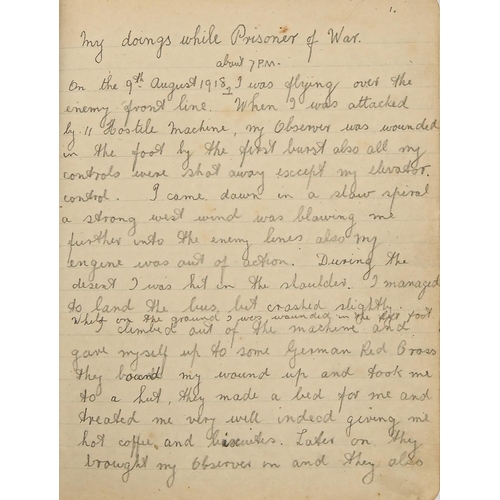 1.
My doings while Prisoner of War.
about 7 P.M.
On the 9th August 1918 I was flying over the
enemy front line. When I was attacked
by 11 Hostile Machine, my Observer was wounded
in the foot by the first burst also all my
controls were shot away except my elevator
control. I came down in a slow spiral
a strong west wind was blowing me
further into the enemy lines also my
engine was out of action. During the
desent I was hit in the shoulder. I managed
to land the bus, but crashed slightly.
Whilst on the ground I was wounded in the foot
I climbed out of the machine and
gave myself up to some German Red Cross
they bound my wound up and took me
to a hut, they made a bed for me and
treated me very well indeed giving me
hot coffee, and biscuites. Later on they
brought my Observer in and they also